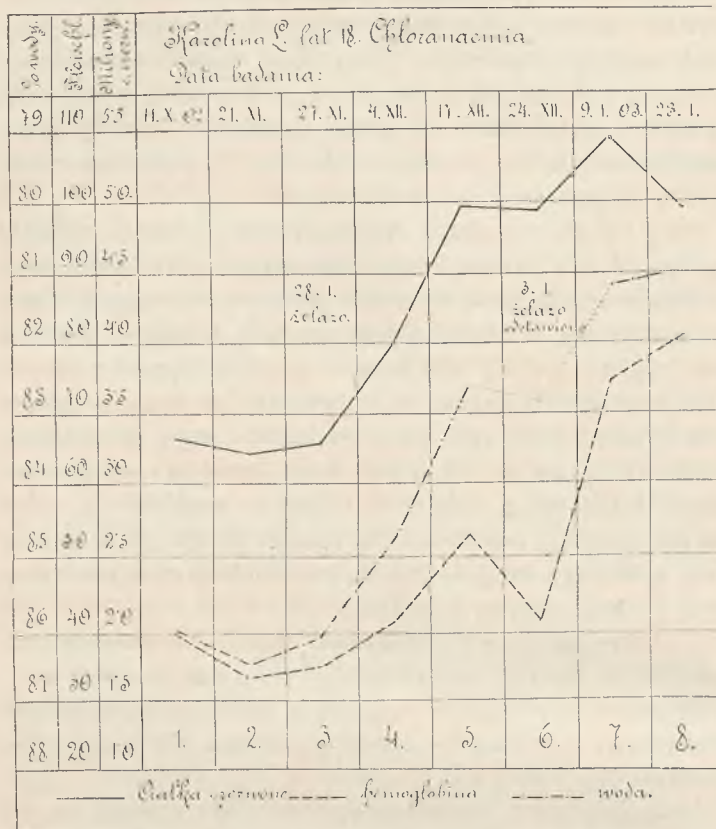 Karolina L. lat 18. Chloranaemia
Data badania:
79 110 55 14. X. 02 21. XI. 27. XI. 4. XII. 17. XII. 24. XII. 9. 1. 03. 23. 1.
80 100 50.
81 90 45
28. 1. 3. 1.
żelazo. żelazo
82 80 40 odstawiono
83 70 35
84 60 30
85 50 25
86 40 20
87 30 15
88 20 10 1. 2. 3. 4. 5. 6. 7. 8.
Ciałka czerwone hemoglobina woda.